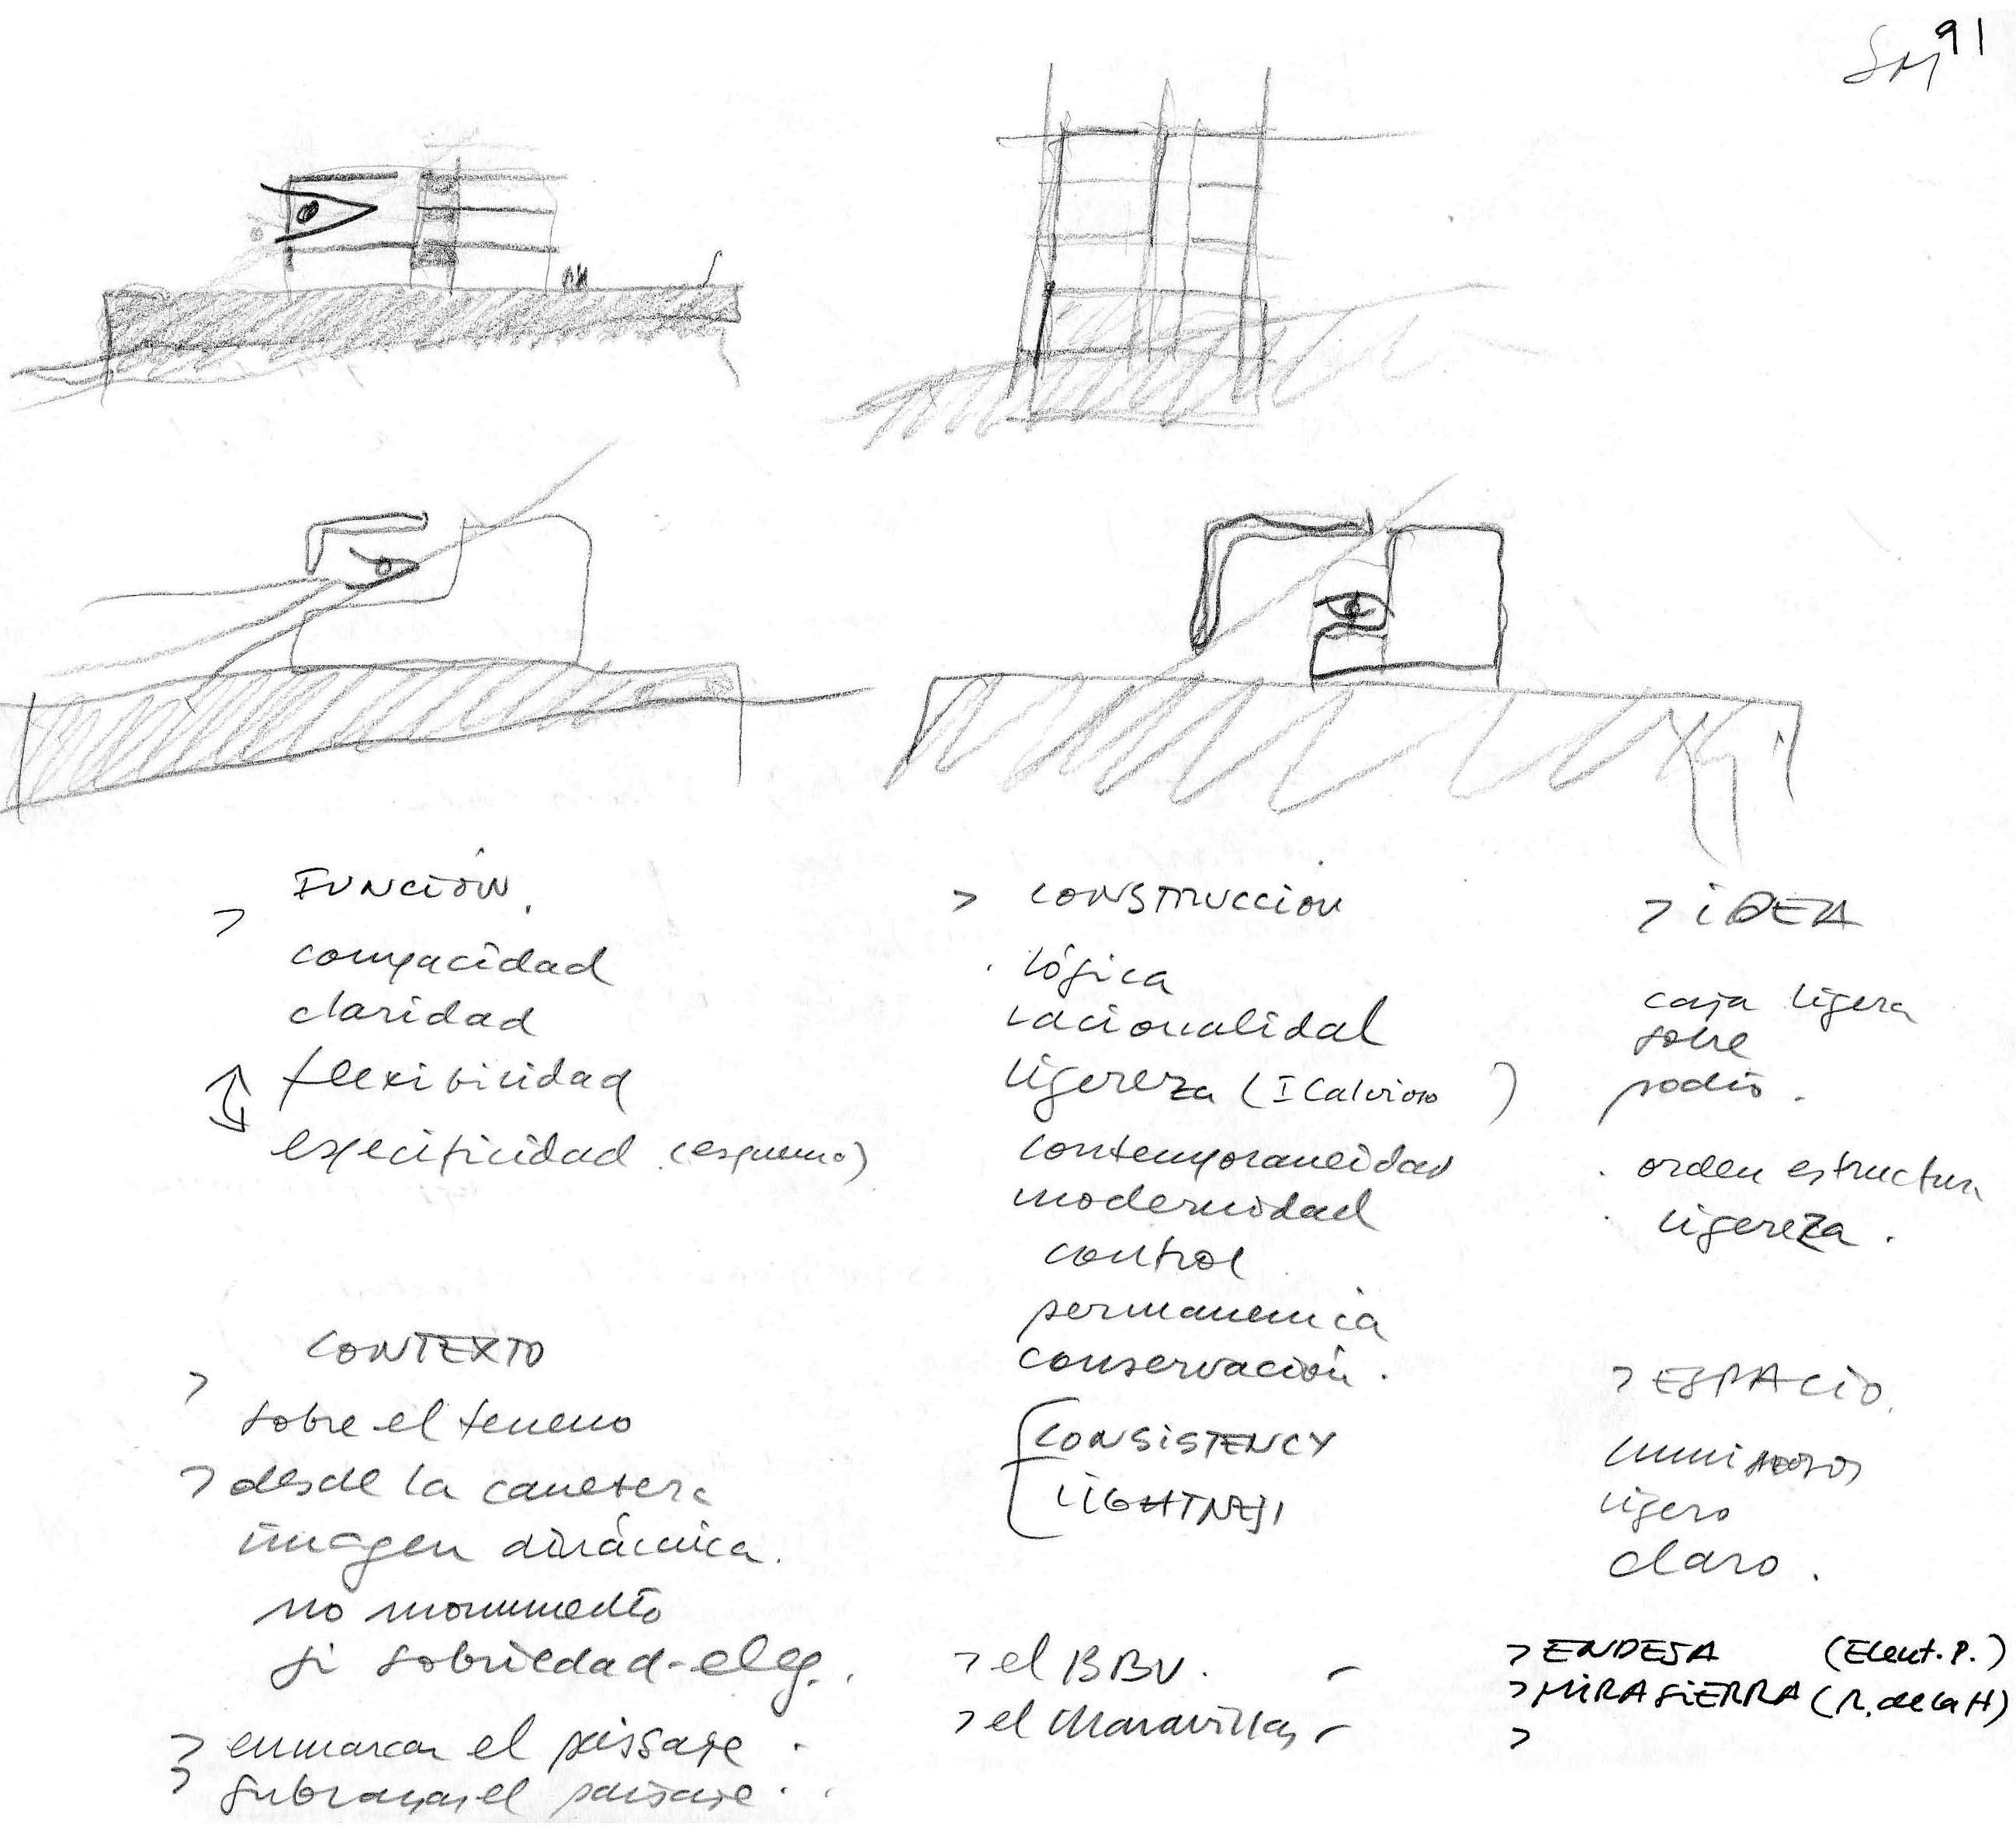 SM 91
> FUNCIÓN.
compacidad
claridad
flexibilidad
especificidad (esquema)
> CONTEXTO
sobre el terreno
> desde la carretera
imagen dinámica.
no monumento
si sobriedad-eleg.
> enmarcar el paisaje.
> subrayar el paisaje.
> CONSTRUCCION
. lógica
racionalidad
ligereza (I Calvino)
contemporaneidad
modernidad
control
permanencia
conservación.
CONSISTENCY
LIGHTNESS
> el BBV.
> el Maravillas
> iDEA
caja ligera
sobre
podio.
. orden estructura
. ligereza.
> ESPACIO.
luminoso
ligero
claro.
> ENDESA
> MIRASIERRA (R. de la H)
>